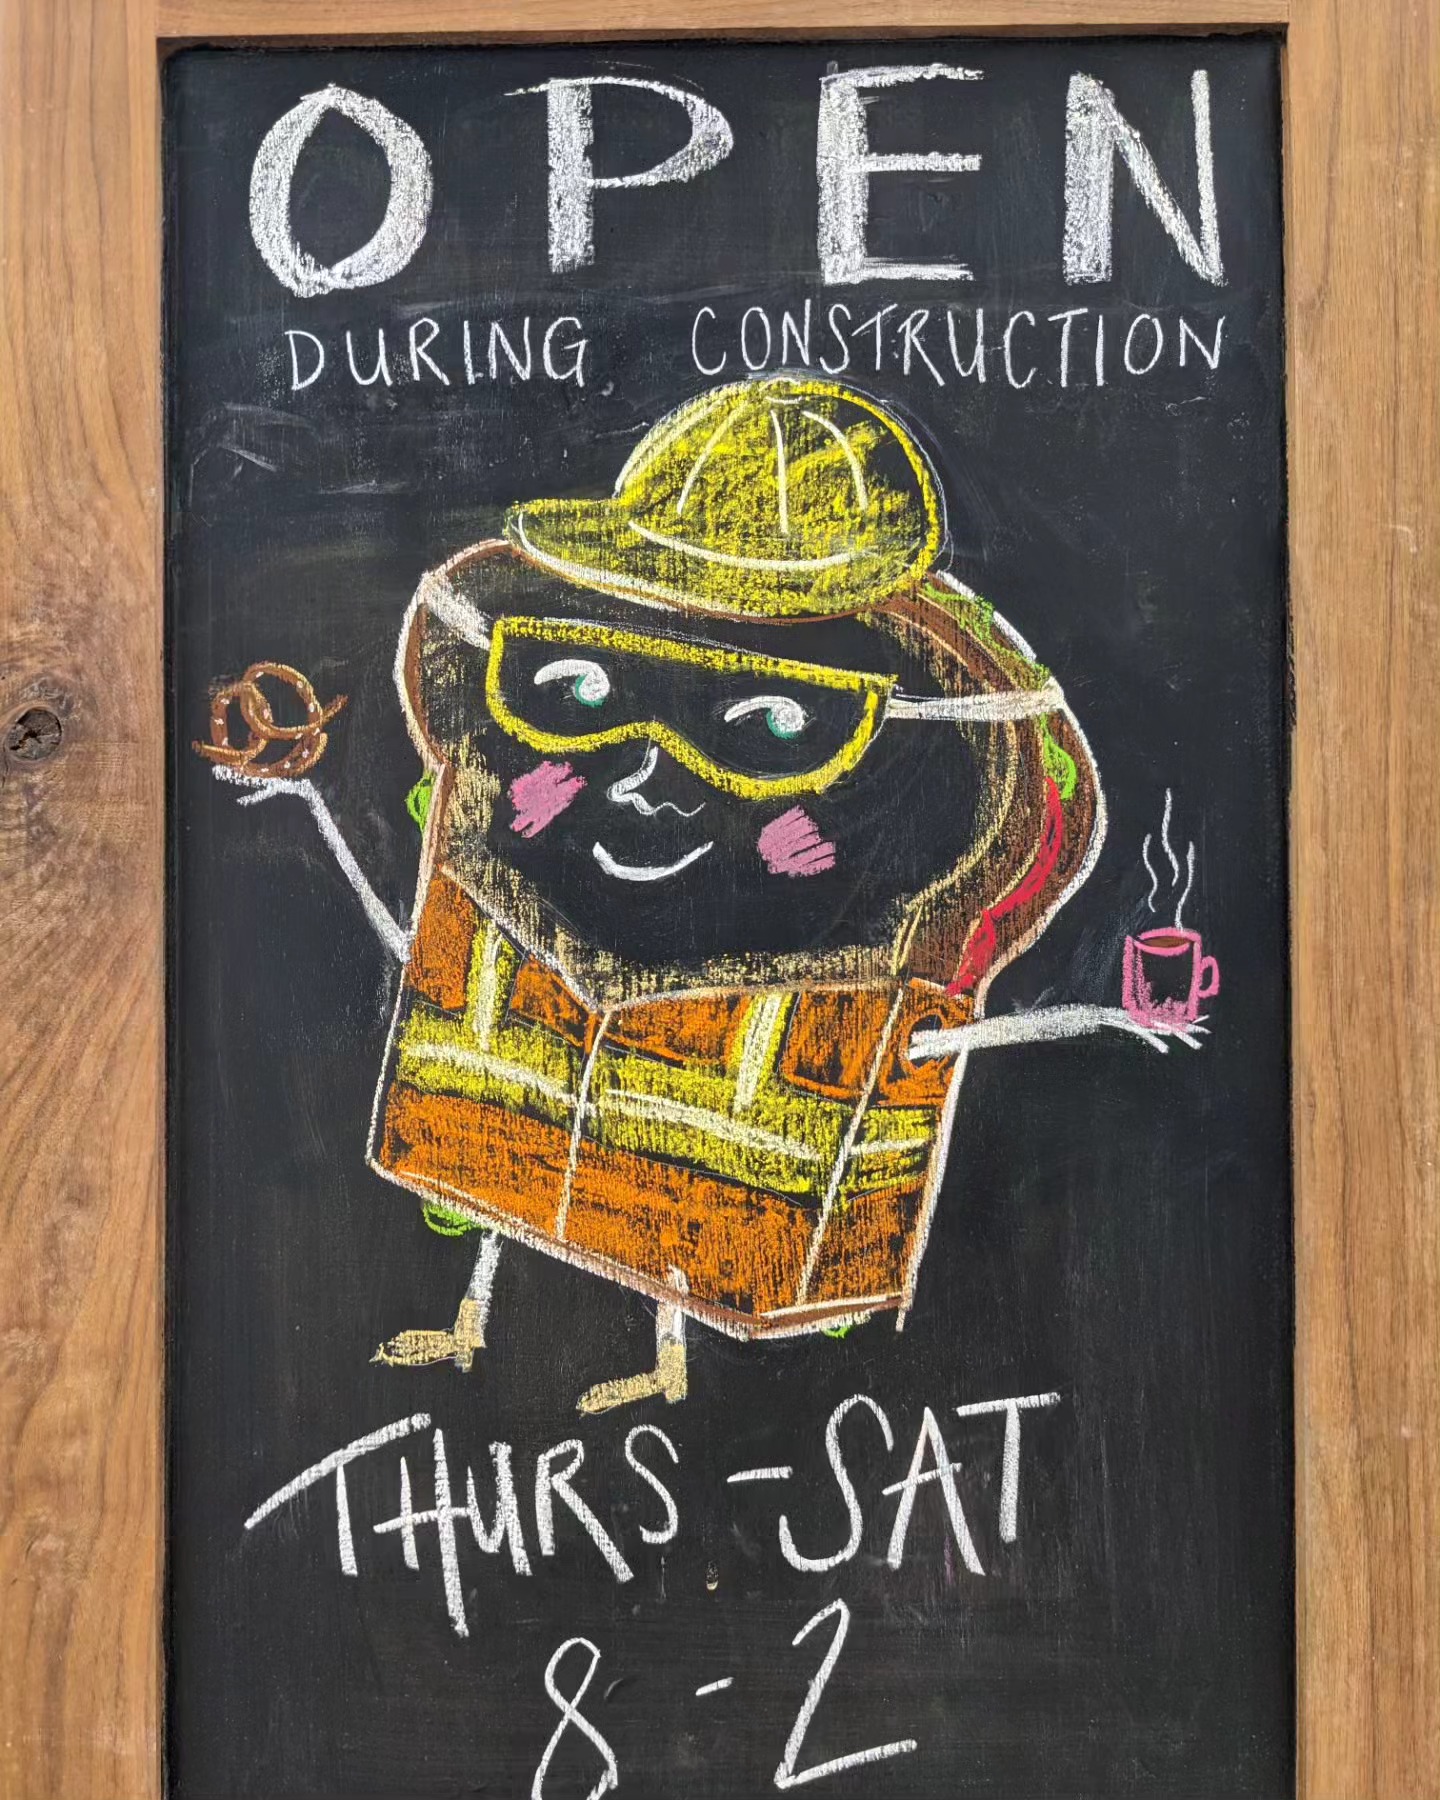 OPEN
DURING CONSTRUCTION
THURS - SAT
8 - 2